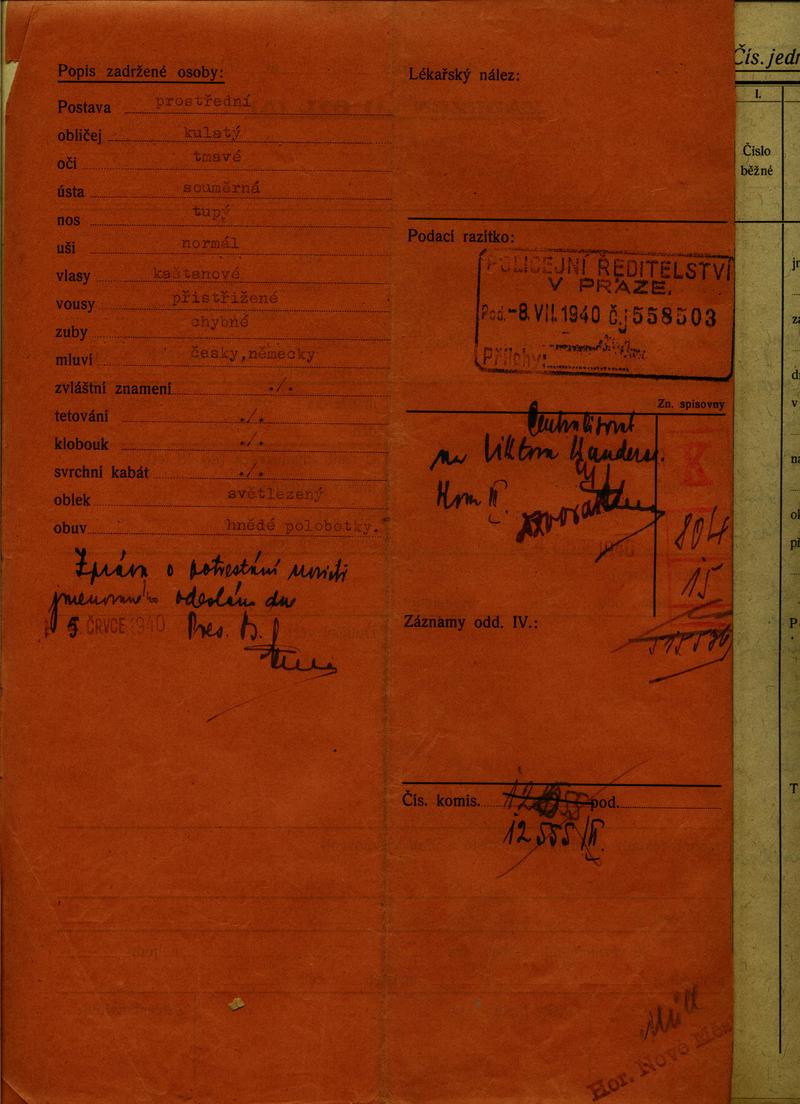 Popis zadržené osoby:
Postava prostřední
obličej kulatý
oči tmavé
ústa souměrná
nos tupý
uši normál
vlasy kaštanové
vousy přistřižené
zuby chybné
mluví česky,německy
zvláštní znamení ./.
tetování ./.
klobouk ./.
svrchní kabát ./.
oblek světlezený
obuv hnědé polobotky.
Zpráva o potrestání
odeslána dne
5. ČRVCE 1940 Pres.
Lékařský nález:
Podací razítko:
POLICEJNÍ ŘEDITELSTVÍ
V PRAZE.
Pod.-8.VII.1940 č.j 558503
Přílohy:
Zn. spisovny
Viktora
K
804
15
Záznamy odd. IV.:
Čís. komis. pod.
12555/II.
Hor. Nové
Čís. jedn
I.
Číslo
běžné